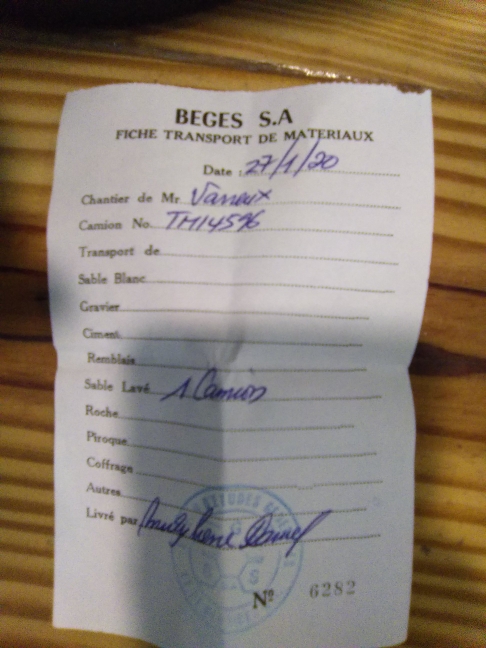 BEGES S.A
FICHE TRANSPORT DE MATERIAUX
Date : 27/1/20
Chantier de Mr Vareux
Camion No. TM14596
Transport de
Sable Blanc
Gravier
Ciment
Remblais
Sable Lavé 1 Camion
Roche
Piroque
Coffrage
Autres
Livré par
Nº 6282